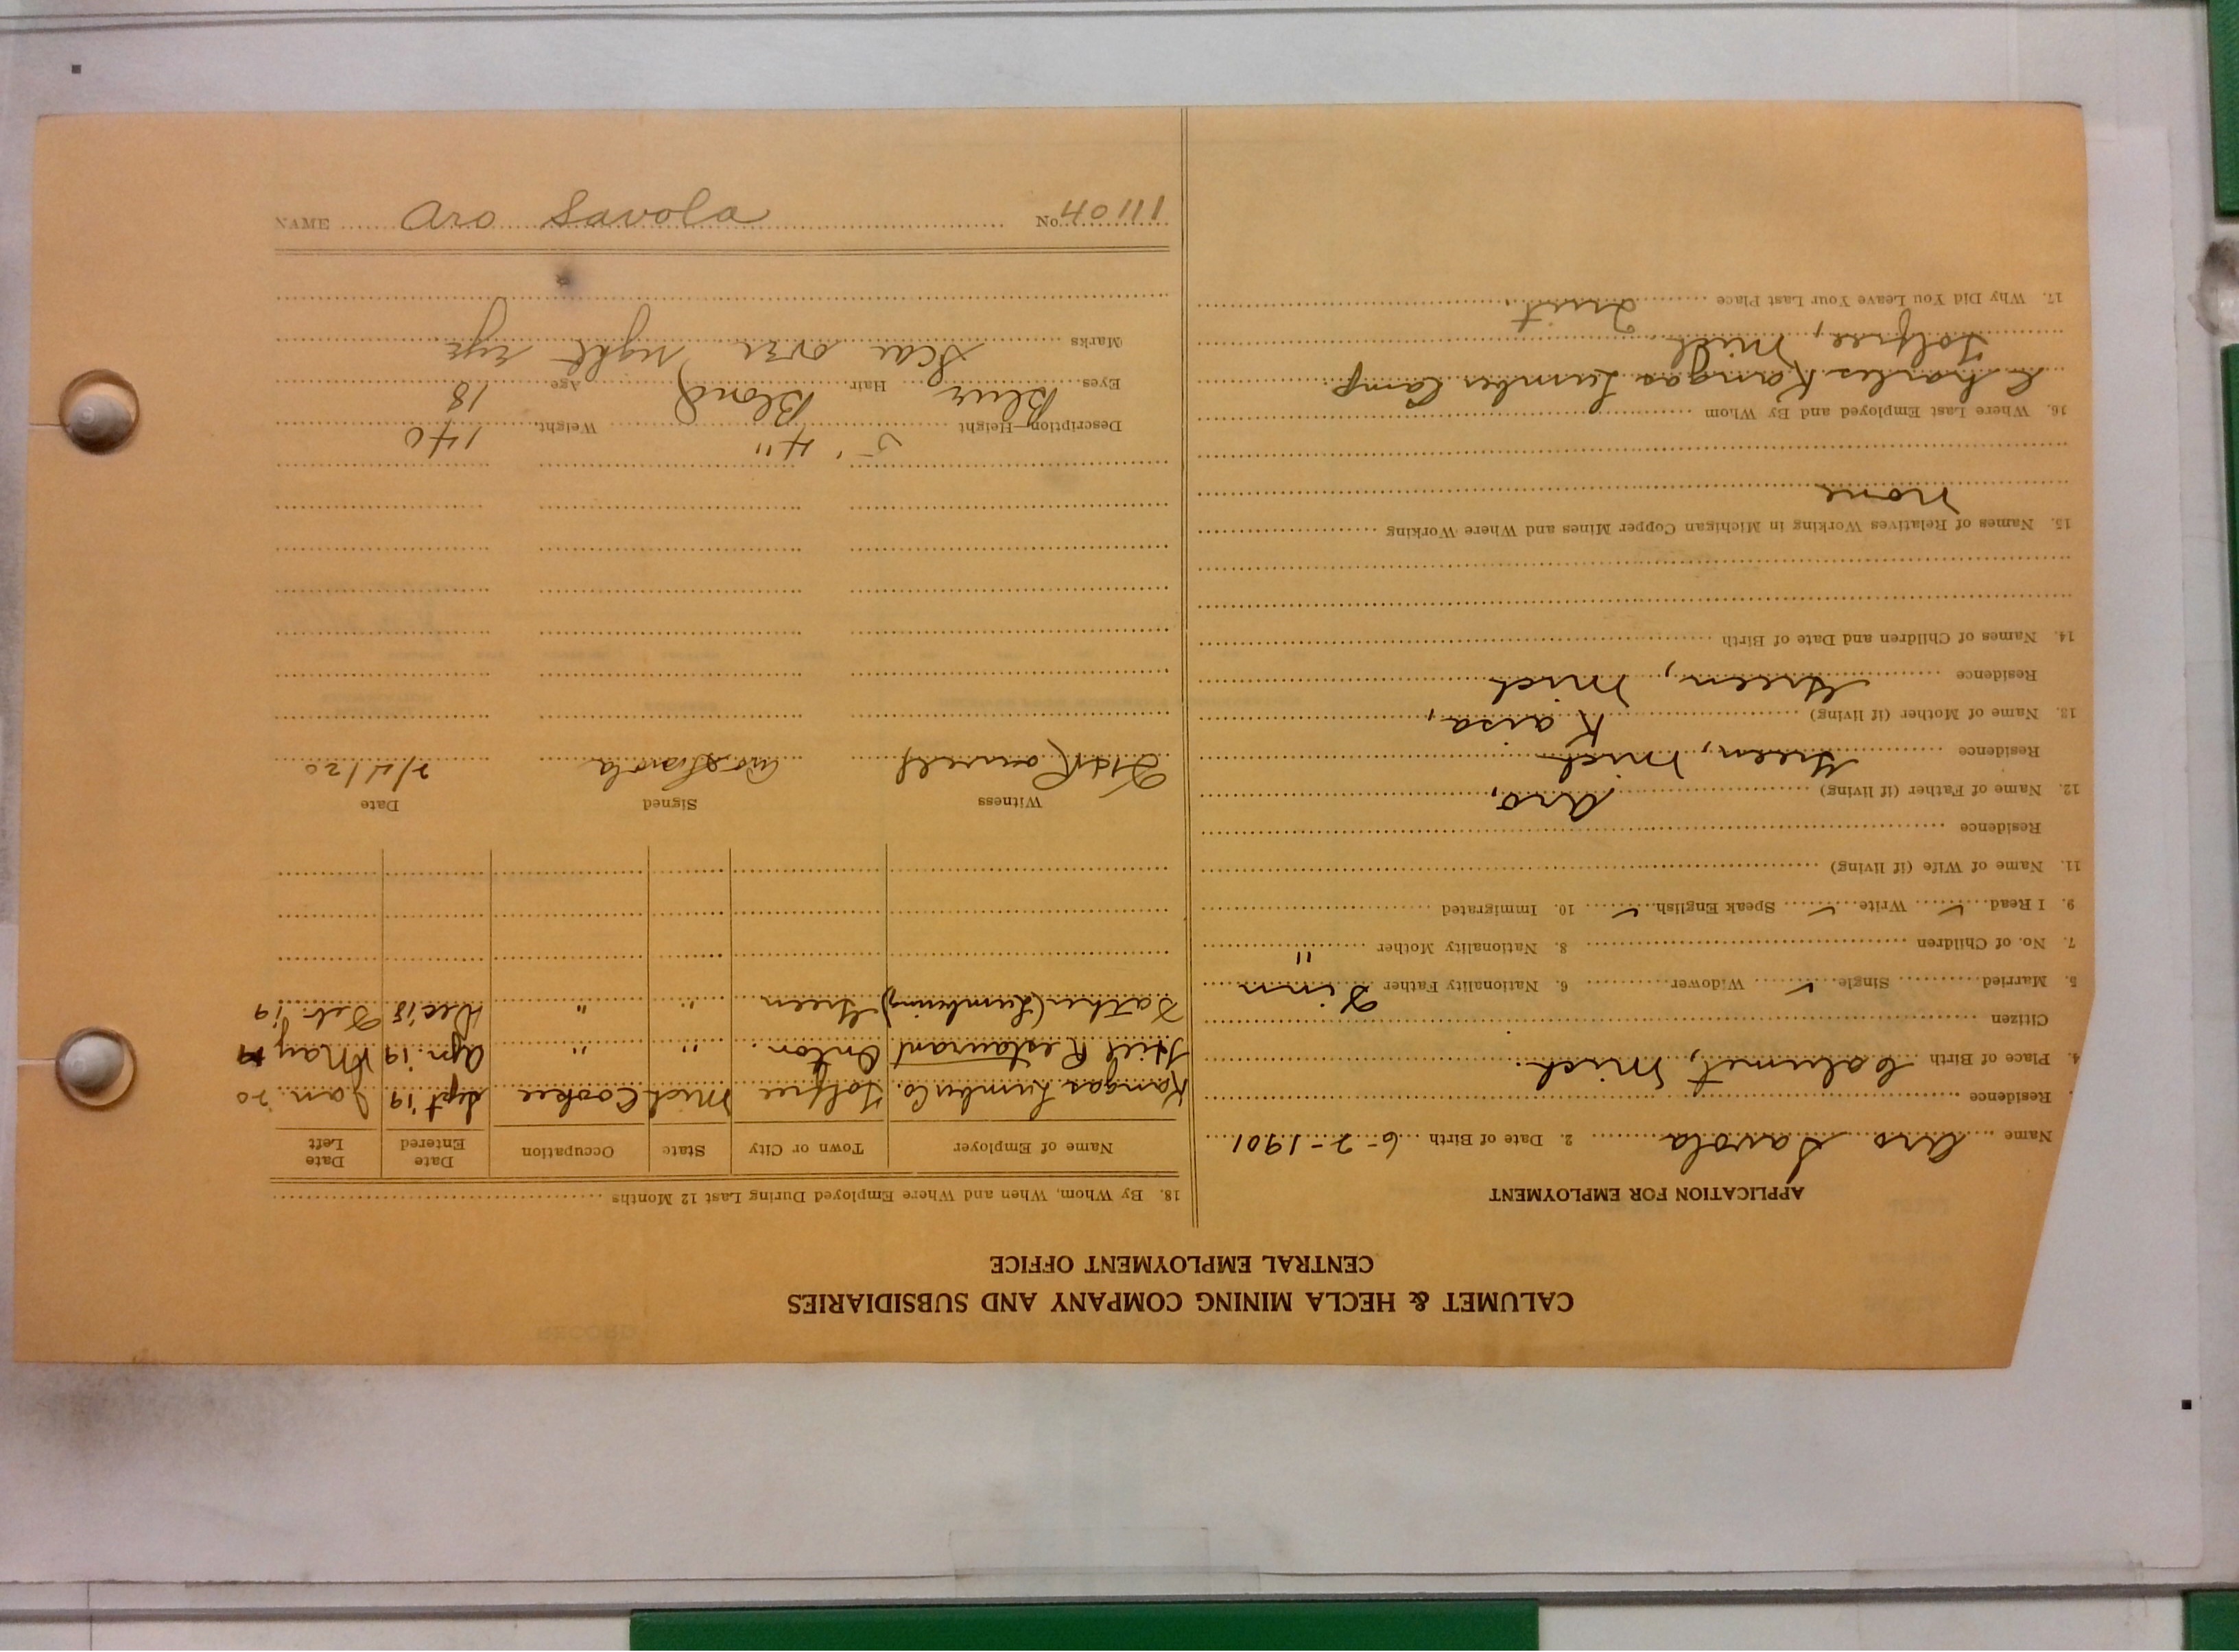 CALUMET & HECLA MINING COMPANY AND SUBSIDIARIES
CENTRAL EMPLOYMENT OFFICE
APPLICATION FOR EMPLOYMENT
Name Aro Savola 2. Date of Birth 6-2-1901
Residence
4. Place of Birth Calumet, Mich.
Citizen
5. Married Single ✓ Widower 6. Nationality Father Finn
7. No. of Children 8. Nationality Mother "
9. I Read ✓ Write ✓ Speak English ✓ 10. Immigrated
11. Name of Wife (if living)
Residence
12. Name of Father (if living) Aro,
Residence Green, Mich
13. Name of Mother (if living) Kaisa,
Residence Green, Mich
14. Names of Children and Date of Birth
15. Names of Relatives Working in Michigan Copper Mines and Where Working
None
16. Where Last Employed and By Whom
Charles Kangas Lumber Camp
Tolfree, Mich
17. Why Did You Leave Your Last Place Quit
18. By Whom, When and Where Employed During Last 12 Months
Name of Employer Town or City State Occupation Date Entered Date Left
Kangas Lumber Co. Tolfree Mich Cookee Sept '19 Jan. 20
Restaurant Onton. " " Apr. '19 May 19
Father (Lumbering) Green " " Dec '18 Feb. '19
Witness Signed Date
Aro Savola 2/4/20
Description—Height 5' 4" Weight 140
Eyes Blue Hair Blond Age 18
Marks Scar over right eye
NAME Aro Savola No. 40111